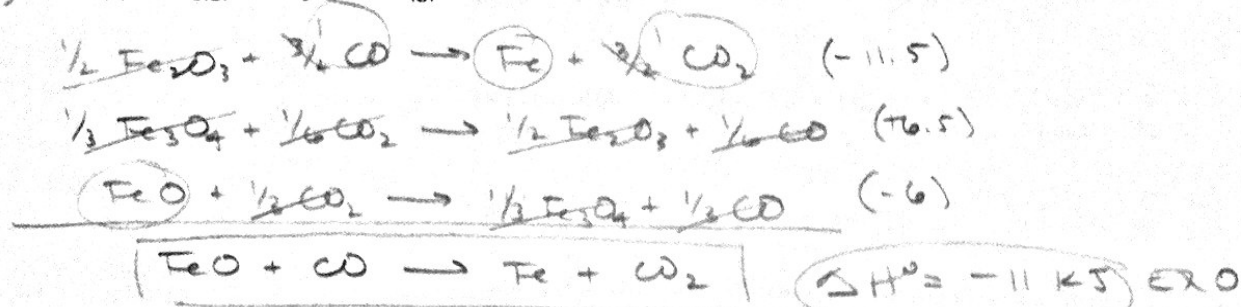 1/2 Fe2O3 + 3/2 CO → Fe + 3/2 CO2 (-11.5)
1/3 Fe3O4 + 1/6 CO2 → 1/2 Fe2O3 + 1/6 CO (+6.5)
FeO + 1/3 CO2 → 1/3 Fe3O4 + 1/3 CO (-6)
FeO + CO → Fe + CO2 ΔH° = -11 KJ EXO